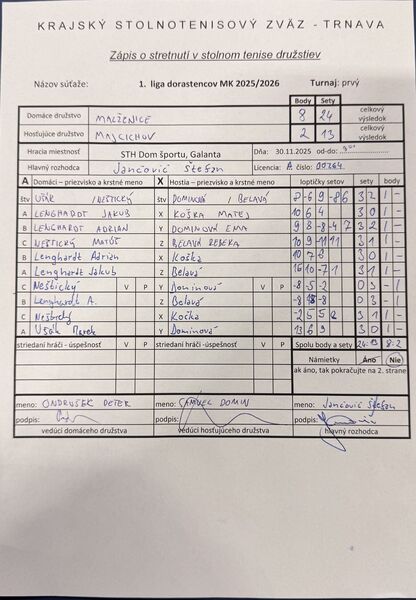 KRAJSKÝ STOLNOTENISOVÝ ZVÄZ - TRNAVA
Zápis o stretnutí v stolnom tenise družstiev
Názov súťaže: 1. liga dorastencov MK 2025/2026 Turnaj: prvý
Body Sety
Domáce družstvo MALŽENICE 8 24 celkový výsledok
Hosťujúce družstvo MAJCICHOV 2 13 celkový výsledok
Hracia miestnosť STH Dom športu, Galanta Dňa: 30.11.2025 od-do:
Hlavný rozhodca Jančovič Štefan Licencia: A číslo: 00264
A Domáci - priezvisko a krstné meno X Hostia - priezvisko a krstné meno loptičky setov sety body
štv /NEŠTICKÝ štv DOMINOVÁ / BELAVÁ 8 -6 9 -8 6 3 2 1 -
A LENGHARDT JAKUB X KOŠKA MATEJ 10 6 4 3 0 1 -
B LENGHARDT ADRIAN Y DOMINOVÁ EMA 9 8 -8 -4 7 3 2 1 -
C NEŠTICKÝ MATÚŠ Z BELAVÁ REBEKA 10 9 -11 8 3 1 1 -
B Lenghardt Adrian X Koška 10 7 6 3 0 1 -
A Lenghardt Jakub Z Belavá 16 10 -7 1 3 1 1 -
C Neštický V P Y Dominová V P -8 -5 -2 0 3 - 1
B Lenghardt A. Z Belavá 0 3 - 1
C Neštický X Kočka -2 5 5 2 3 1 1 -
A Marek Y Dominová 13 6 9 3 0 1 -
striedaní hráči - úspešnosť V P striedaní hráči - úspešnosť V P Spolu body a sety 24:13 8:2
Námietky Áno Nie
ak áno, tak pokračujte na 2. strane
meno: ONDRUŠEK PETER meno: SAMUEL DOMIN meno: Jančovič Štefan
podpis: podpis: podpis:
vedúci domáceho družstva vedúci hosťujúceho družstva hlavný rozhodca